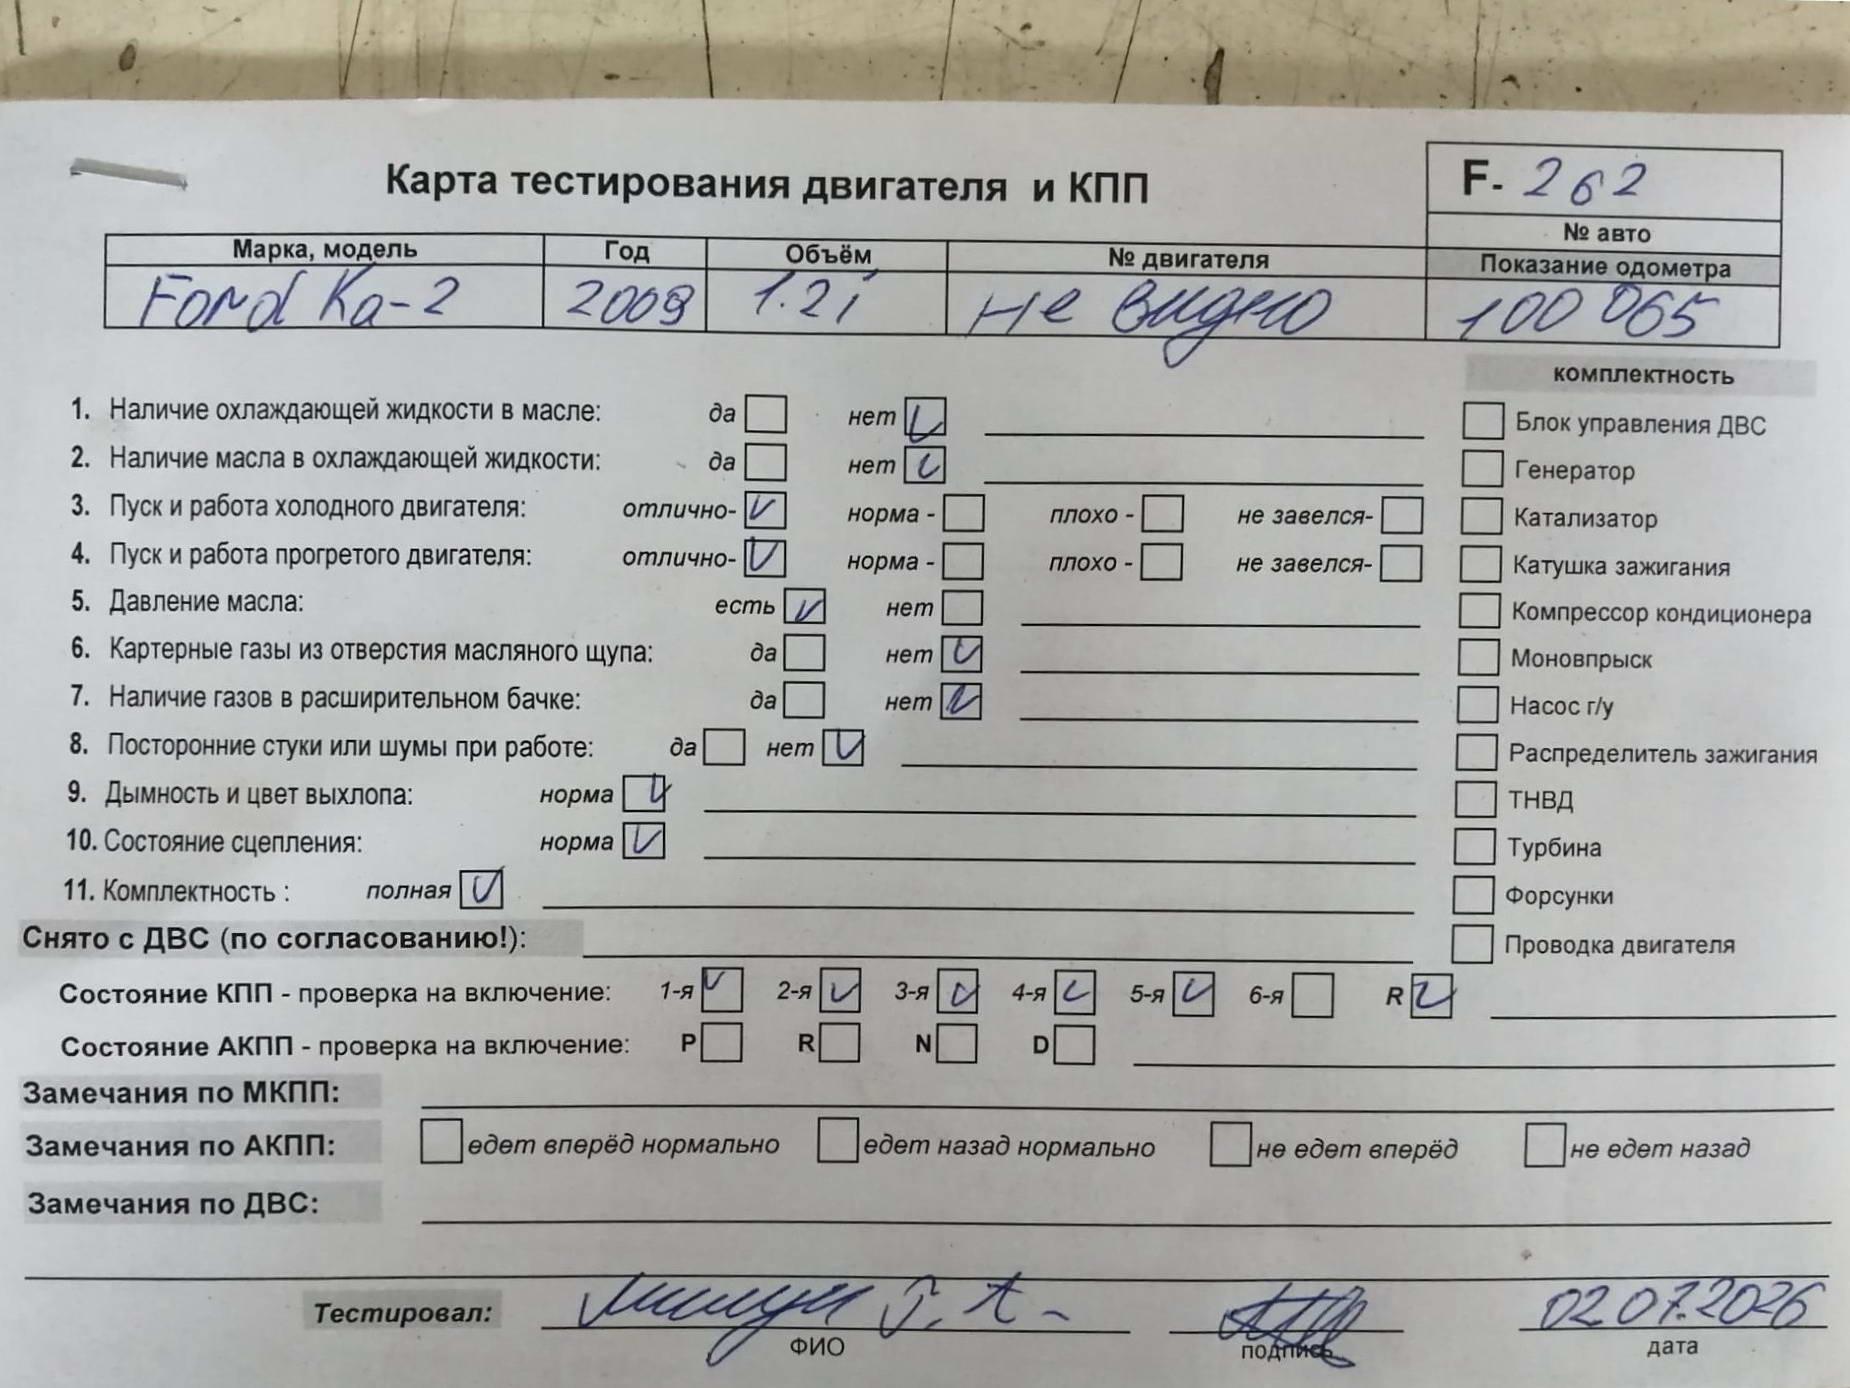 Карта тестирования двигателя и КПП
F- 262
№ авто
Марка, модель Год Объём № двигателя Показание одометра
Ford Ka-2 2009 1.2i не видно 100 065
комплектность
1. Наличие охлаждающей жидкости в масле: да нет
Блок управления ДВС
2. Наличие масла в охлаждающей жидкости: да нет
Генератор
3. Пуск и работа холодного двигателя: отлично- норма - плохо - не завелся-
Катализатор
4. Пуск и работа прогретого двигателя: отлично- норма - плохо - не завелся-
Катушка зажигания
5. Давление масла: есть нет
Компрессор кондиционера
6. Картерные газы из отверстия масляного щупа: да нет
Моновпрыск
7. Наличие газов в расширительном бачке: да нет
Насос г/у
8. Посторонние стуки или шумы при работе: да нет
Распределитель зажигания
9. Дымность и цвет выхлопа: норма
ТНВД
10. Состояние сцепления: норма
Турбина
11. Комплектность : полная
Форсунки
Снято с ДВС (по согласованию!):
Проводка двигателя
Состояние КПП - проверка на включение: 1-я 2-я 3-я 4-я 5-я 6-я R
Состояние АКПП - проверка на включение: P R N D
Замечания по МКПП:
Замечания по АКПП: едет вперёд нормально едет назад нормально не едет вперёд не едет назад
Замечания по ДВС:
Тестировал: 02.07.2026
ФИО подпись дата